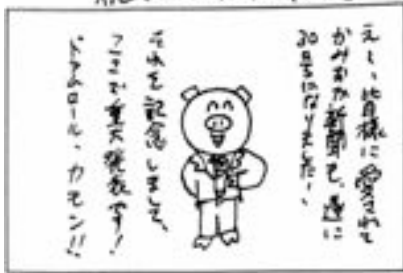 えー、皆様に愛されて
かみおか新聞も、遂に
30号になりました！
それを記念しまして、
ここで重大発表です！
ドラムロール、カモン!!